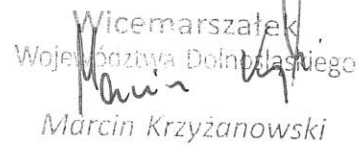 Wicemarszałek
Województwa Dolnośląskiego
Marcin Krzyżanowski